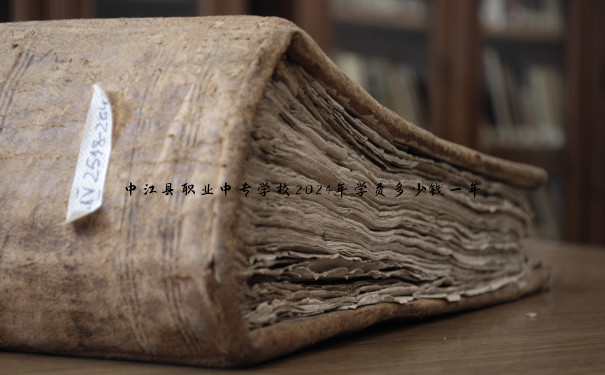 中江县职业中专学校2024年学费多少钱一年